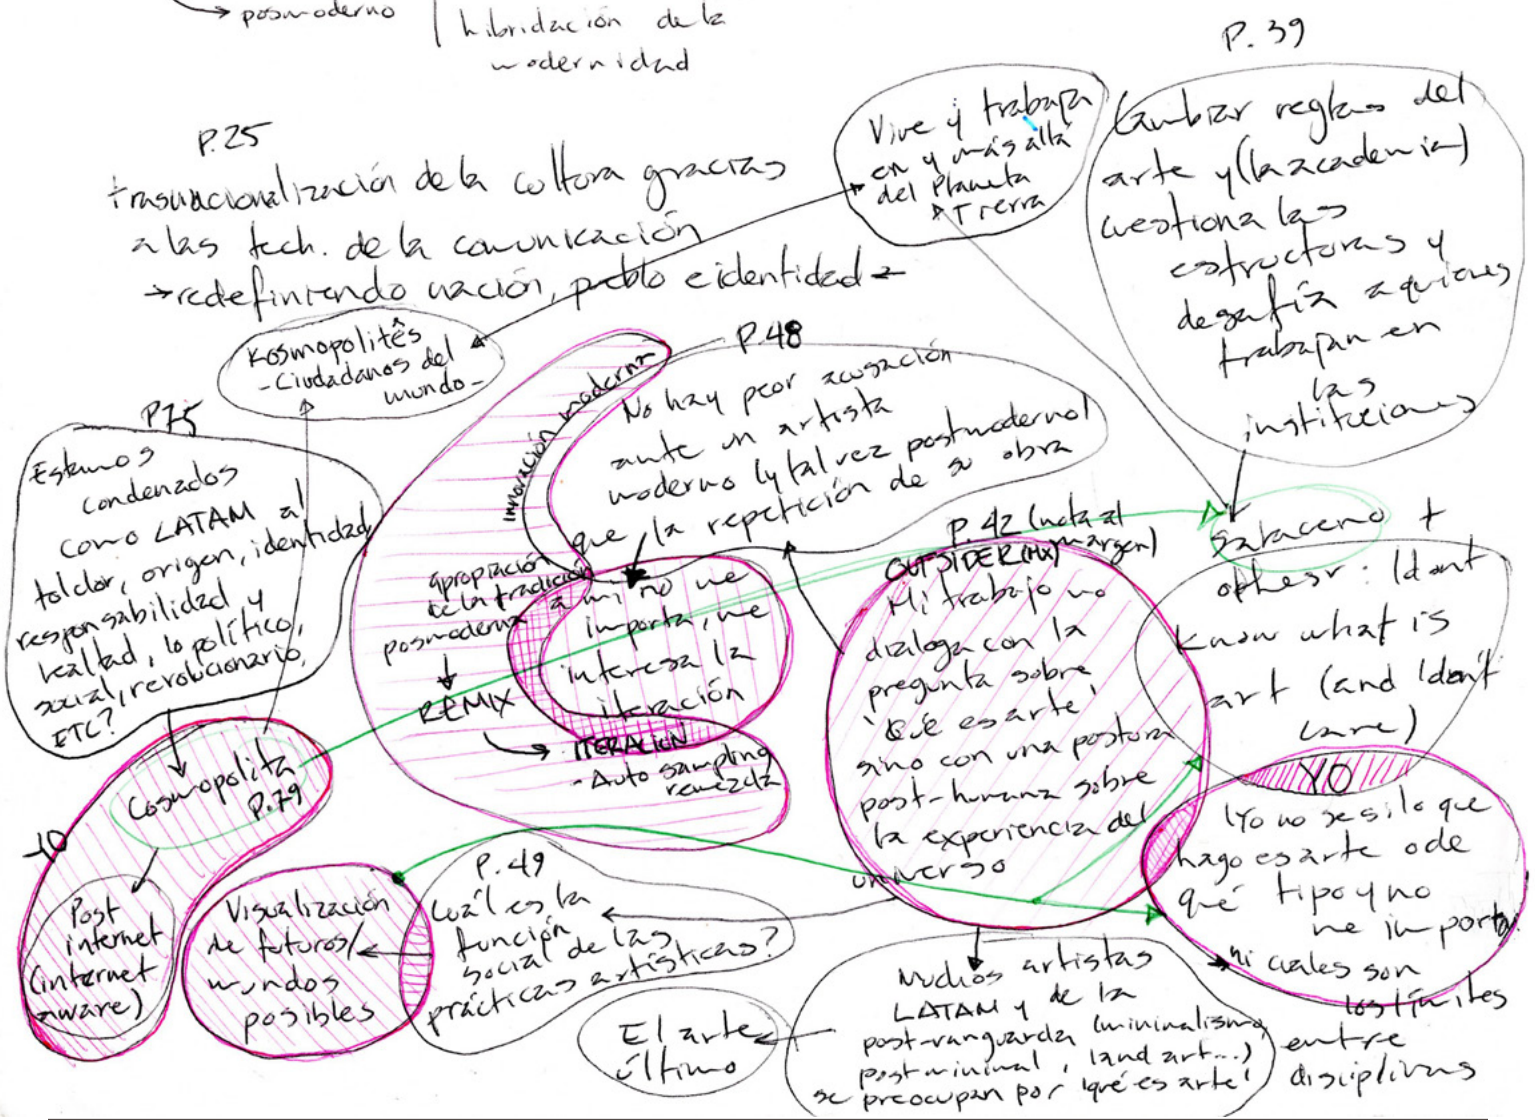 → posmoderno
hibridación de la
modernidad
P. 25
trasnacionalización de la cultura gracias
a las tech. de la comunicación
→ redefiniendo nación, pueblo e identidad
Vive y trabaja
en y más allá
del Planeta
Tierra
P. 39
Cambiar reglas del
arte y (la academia)
cuestiona las
estructuras y
desafía a quienes
trabajan en
las
instituciones
Kosmopolitês
- Ciudadanos del
mundo -
P. 48
No hay peor acusación
ante un artista
moderno (y tal vez postmoderno)
que la repetición de su obra
innovación moderna
P 75
Estamos
condenados
como LATAM al
folclor, origen, identidad,
responsabilidad y
lealtad, lo político,
social, revolucionario,
ETC?
apropiación
de la tradición
posmoderna
REMIX
ITERACIÓN
- Auto sampling
remezcla
a mí no me
importa, me
interesa la
iteración
P. 42 (nota al
margen)
OUTSIDER (MX)
Mi trabajo no
dialoga con la
pregunta sobre
'Qué es arte'
sino con una postura
post-humana sobre
la experiencia del
universo
Saraceno +
others: I dont
know what is
art (and I don't
care)
YO
(Yo no se si lo que
hago es arte o de
qué tipo y no
me importa
ni cuales son
los límites
entre
disciplinas
Cosmopolita
P. 79
YO
Post
internet
(internet
aware)
Visualización
de futuros/
mundos
posibles
P. 49
Cuál es la
función
social de las
prácticas artísticas?
El arte
último
Muchos artistas
LATAM y de la
post-vanguardia (minimalismo,
postminimal, land art...)
se preocupan por 'qué es arte'